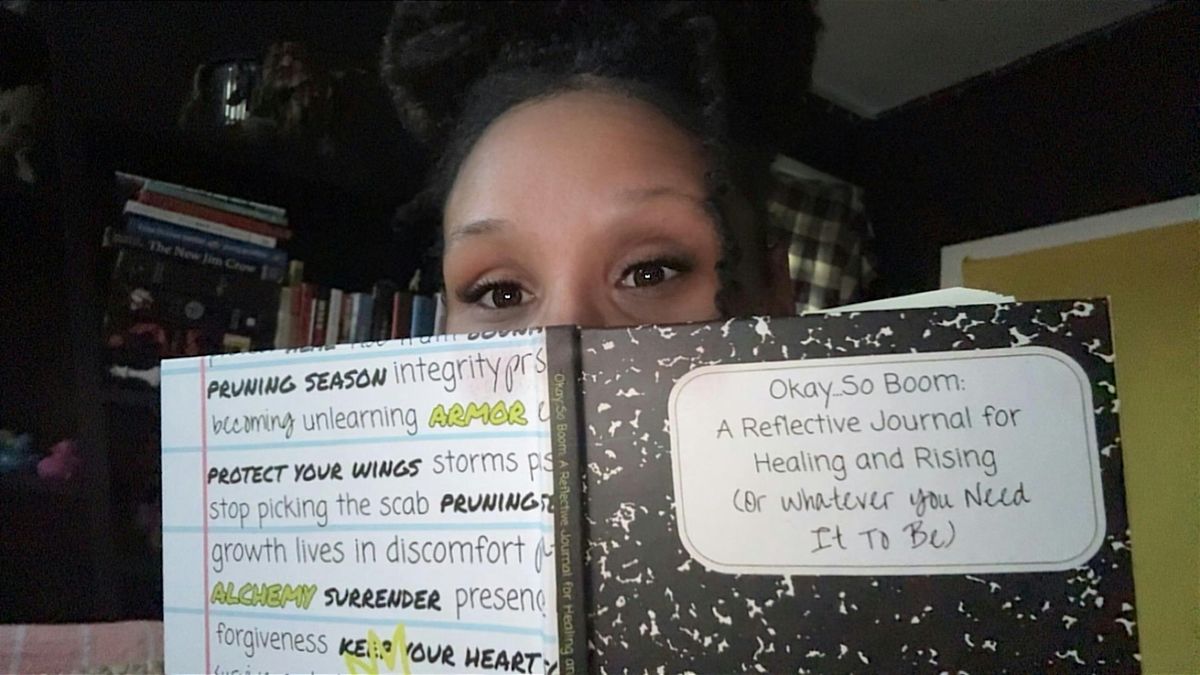 The New Jim Crow
PRUNING SEASON integrity
becoming unlearning ARMOR
PROTECT YOUR WINGS storms
stop picking the scab PRUNING
growth lives in discomfort
ALCHEMY SURRENDER
forgiveness KEEP YOUR HEART
Okay...So Boom: A Reflective Journal for Healing
Okay...So Boom:
A Reflective Journal for
Healing and Rising
(Or Whatever You Need
It To Be)